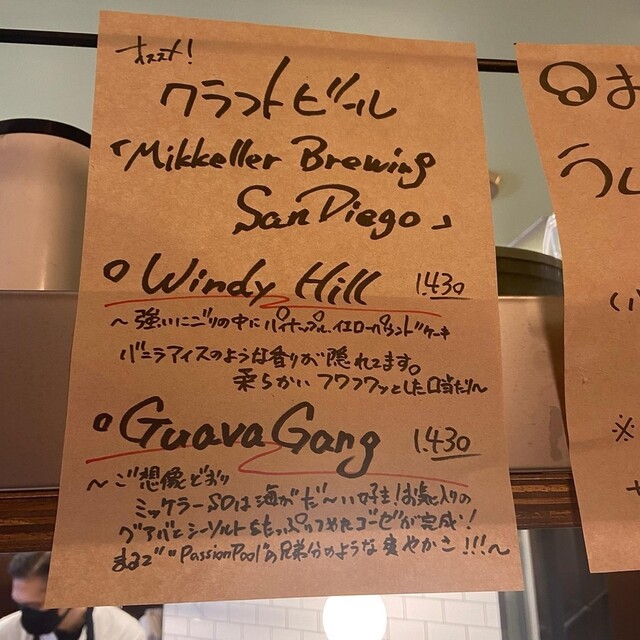 オススメ!
クラフトビール
「Mikkeller Brewing
San Diego」
○ Windy Hill 1.430
〜強いにごりの中にパイナップル、イエローパウンドケーキ
バニラアイスのような香りが隠れてます。
柔らかいフワフワッとした口当たり〜
○ Guava Gang 1.430
〜ご想像どおり
ミッケラーSDは海がだ〜い好き!お気に入りの
グアバとシーソルトをたっぷりつめたゴーゼが完成!
まるで"PassionPool"の兄弟分のような爽やかさ!!!〜
お
うし
※